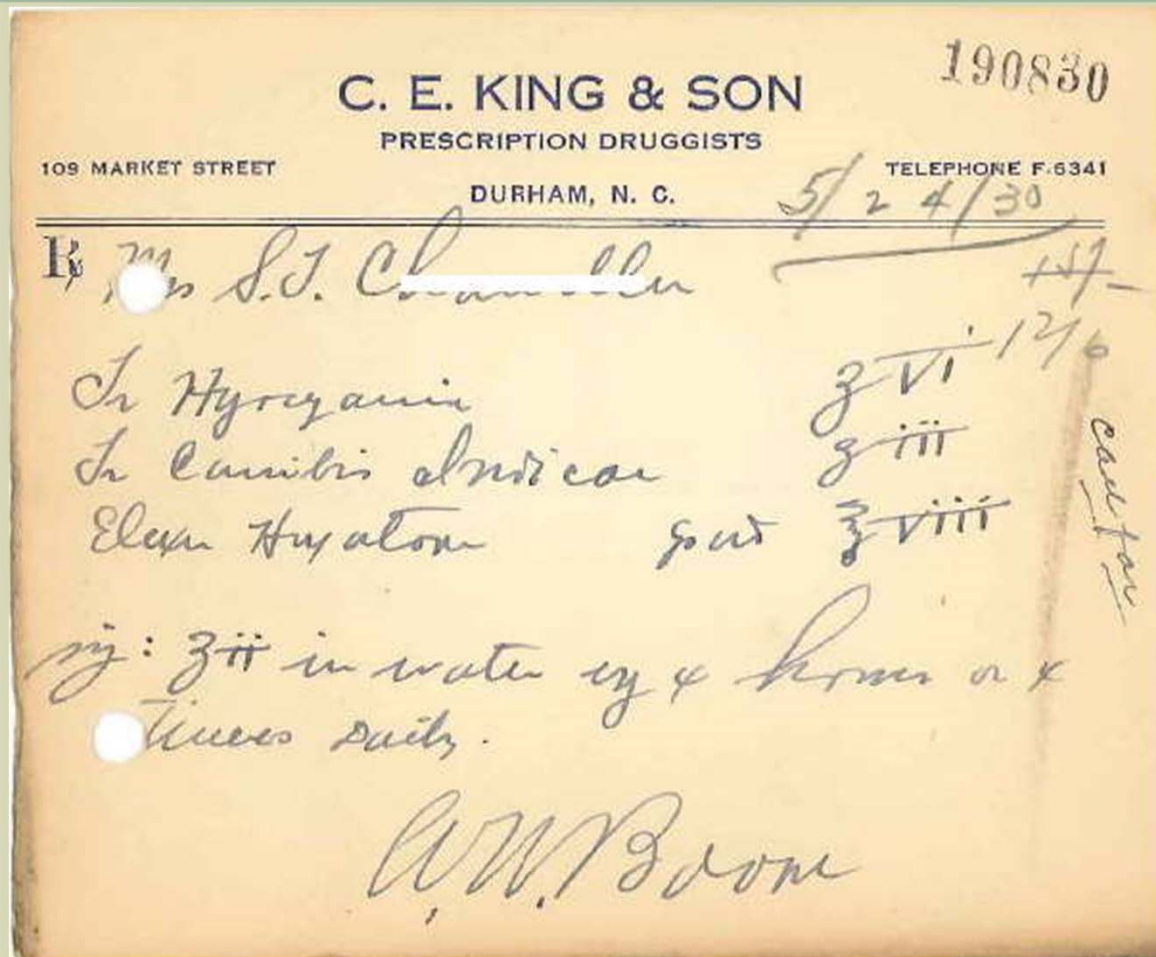 190830
C. E. KING & SON
PRESCRIPTION DRUGGISTS
109 MARKET STREET
TELEPHONE F-6341
DURHAM, N. C.
5/24/30
℞ Mrs S.T.
Tr Hyocyamia ʒ vi
Tr Cannibis Indicae ʒ iii
Elexir ʒ viii
sig: ʒ ii in water ey 4 hours or 4
Times Daily.
call for
W. Boone